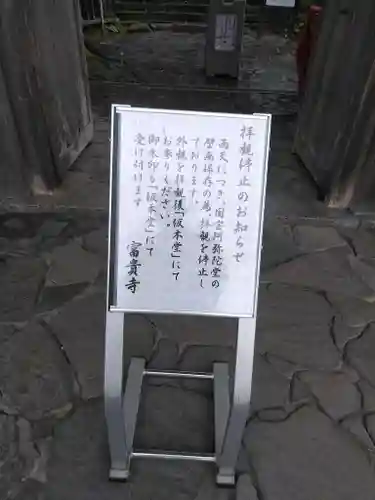 拝観停止のお知らせ
雨天につき、国宝阿弥陀堂の
壁画保存の為、拝観を停止し
ております。
外観を拝観後「仮本堂」にて
お参りください
御朱印も「仮本堂」にて
受け付けます
富貴寺